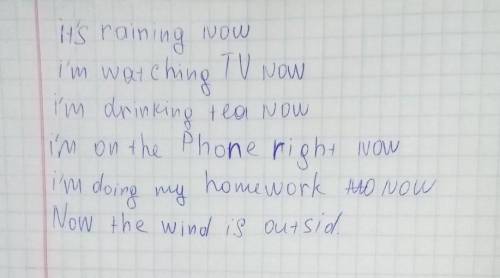 it's raining now
i'm watching TV now
i'm drinking tea now
i'm on the Phone right now
i'm doing my homework now
Now the wind is outsid.